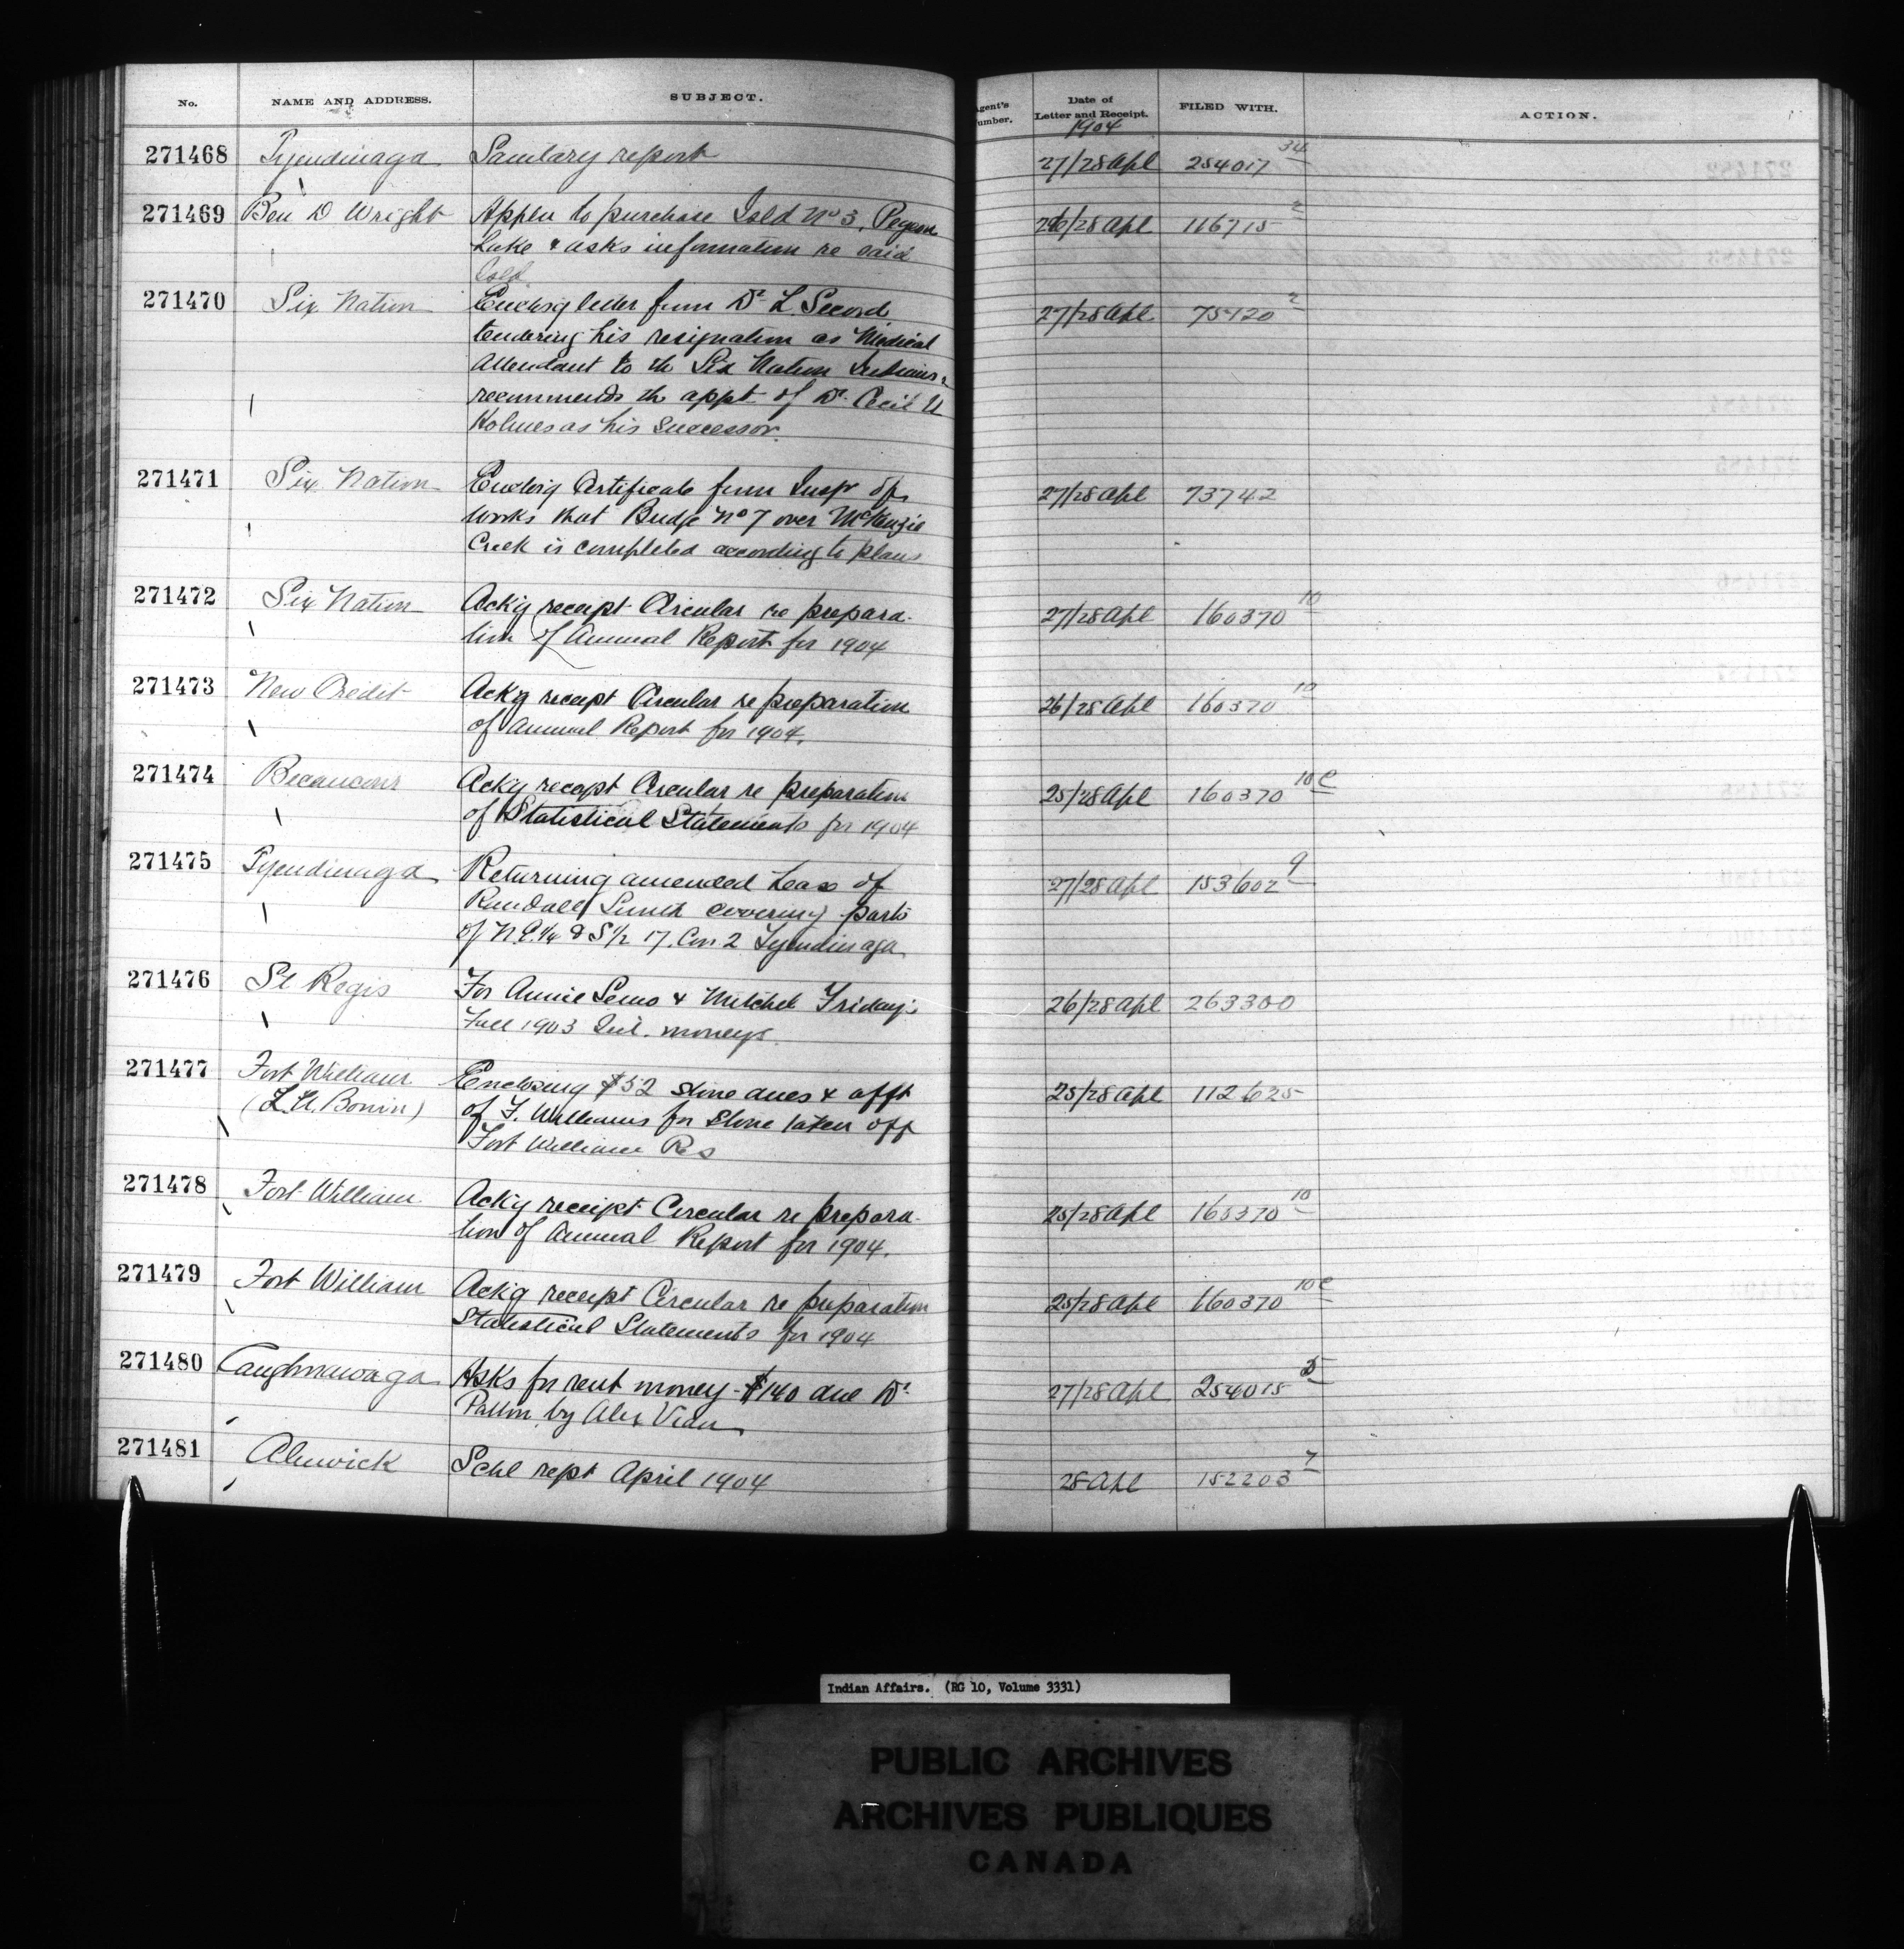 No. NAME AND ADDRESS. SUBJECT. Agent's Number. Date of Letter and Receipt. FILED WITH. ACTION.
1904
271468 Tyendinaga Sanitary report 27/28 Apl 254017 34
271469 Ben D Wright Applen to purchase Isld No 3, 26/28 Apl 116715 2
Lake & asks information re said
Isld
271470 Six Nation Enclosg letter from Dr L Secord 27/28 Apl 75120 2
tendering his resignation as Medical
Attendant to the Six Nation Indians &
recommends the appt of Dr. Cecil
Holmes as his Successor.
271471 Six Nation Enclosig Certificate from Insp of 27/28 Apl 73742
works that Bridge No 7 over McKenzie
Creek is completed according to plans
271472 Six Nation Ack'g receipt Circular re prepara- 27/28 Apl 160370 10
tion of Annual Report for 1904
271473 New Credit Ackg receipt Circular re preparation 26/28 Apl 160370 10
of Annual Report for 1904.
271474 Becancour Ackg receipt Circular re preparation 25/28 Apl 160370 10c
of Statistical Statements for 1904
271475 Tyendinaga Returning amended Lease of 27/28 Apl 153602 9
Randall Smith covering parts
of N E. 1/4 & S 1/2 17. Con 2 Tyendinaga
271476 St Regis For Annie & Mitchel Friday's 26/28 Apl 263300
Fall 1903 Int. moneys.
271477 Fort William Enclosing $52 stone dues & afft 25/28 Apl 112625
(L.A. Bonin) of F. Williams for stone taken off
Fort William Res
271478 Fort William Ackg receipt Circular re prepara- 25/28 Apl 160370 10
tion of Annual Report for 1904.
271479 Fort William Ackg receipt Circular re preparation 25/28 Apl 160370 10c
Statistical Statements for 1904
271480 Caughnawaga Asks for rent money - $140 due Dr. 27/28 Apl 254015 5
Patton by Alex
271481 Alnwick Schl rept April 1904 28 Apl 152203 7
Indian Affairs. (RG 10, Volume 3331)
PUBLIC ARCHIVES
ARCHIVES PUBLIQUES
CANADA